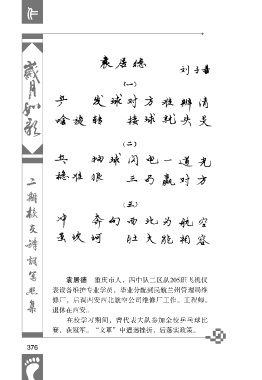 作
岁月如歌
二期校友诗词写照集
袁居德
(一)
乒 发球对方难辨清
啥旋转 接球就失灵
(二)
兵 抽球闪电一道光
稳准狠 三局赢对方
(三)
冲 奔向西北为航空
大能相容
袁居德 重庆市人,四中队二区队205班飞机仪
表设备维护专业学员。毕业分配到民航兰州管理局维
修厂,后调西安西北航空公司维修厂工作。工程师。
退休在西安。
在校学习期间,曾代表大队参加全校乒乓球比
赛,获冠军。“文革”中遭遇挫折,后落实政策。
376